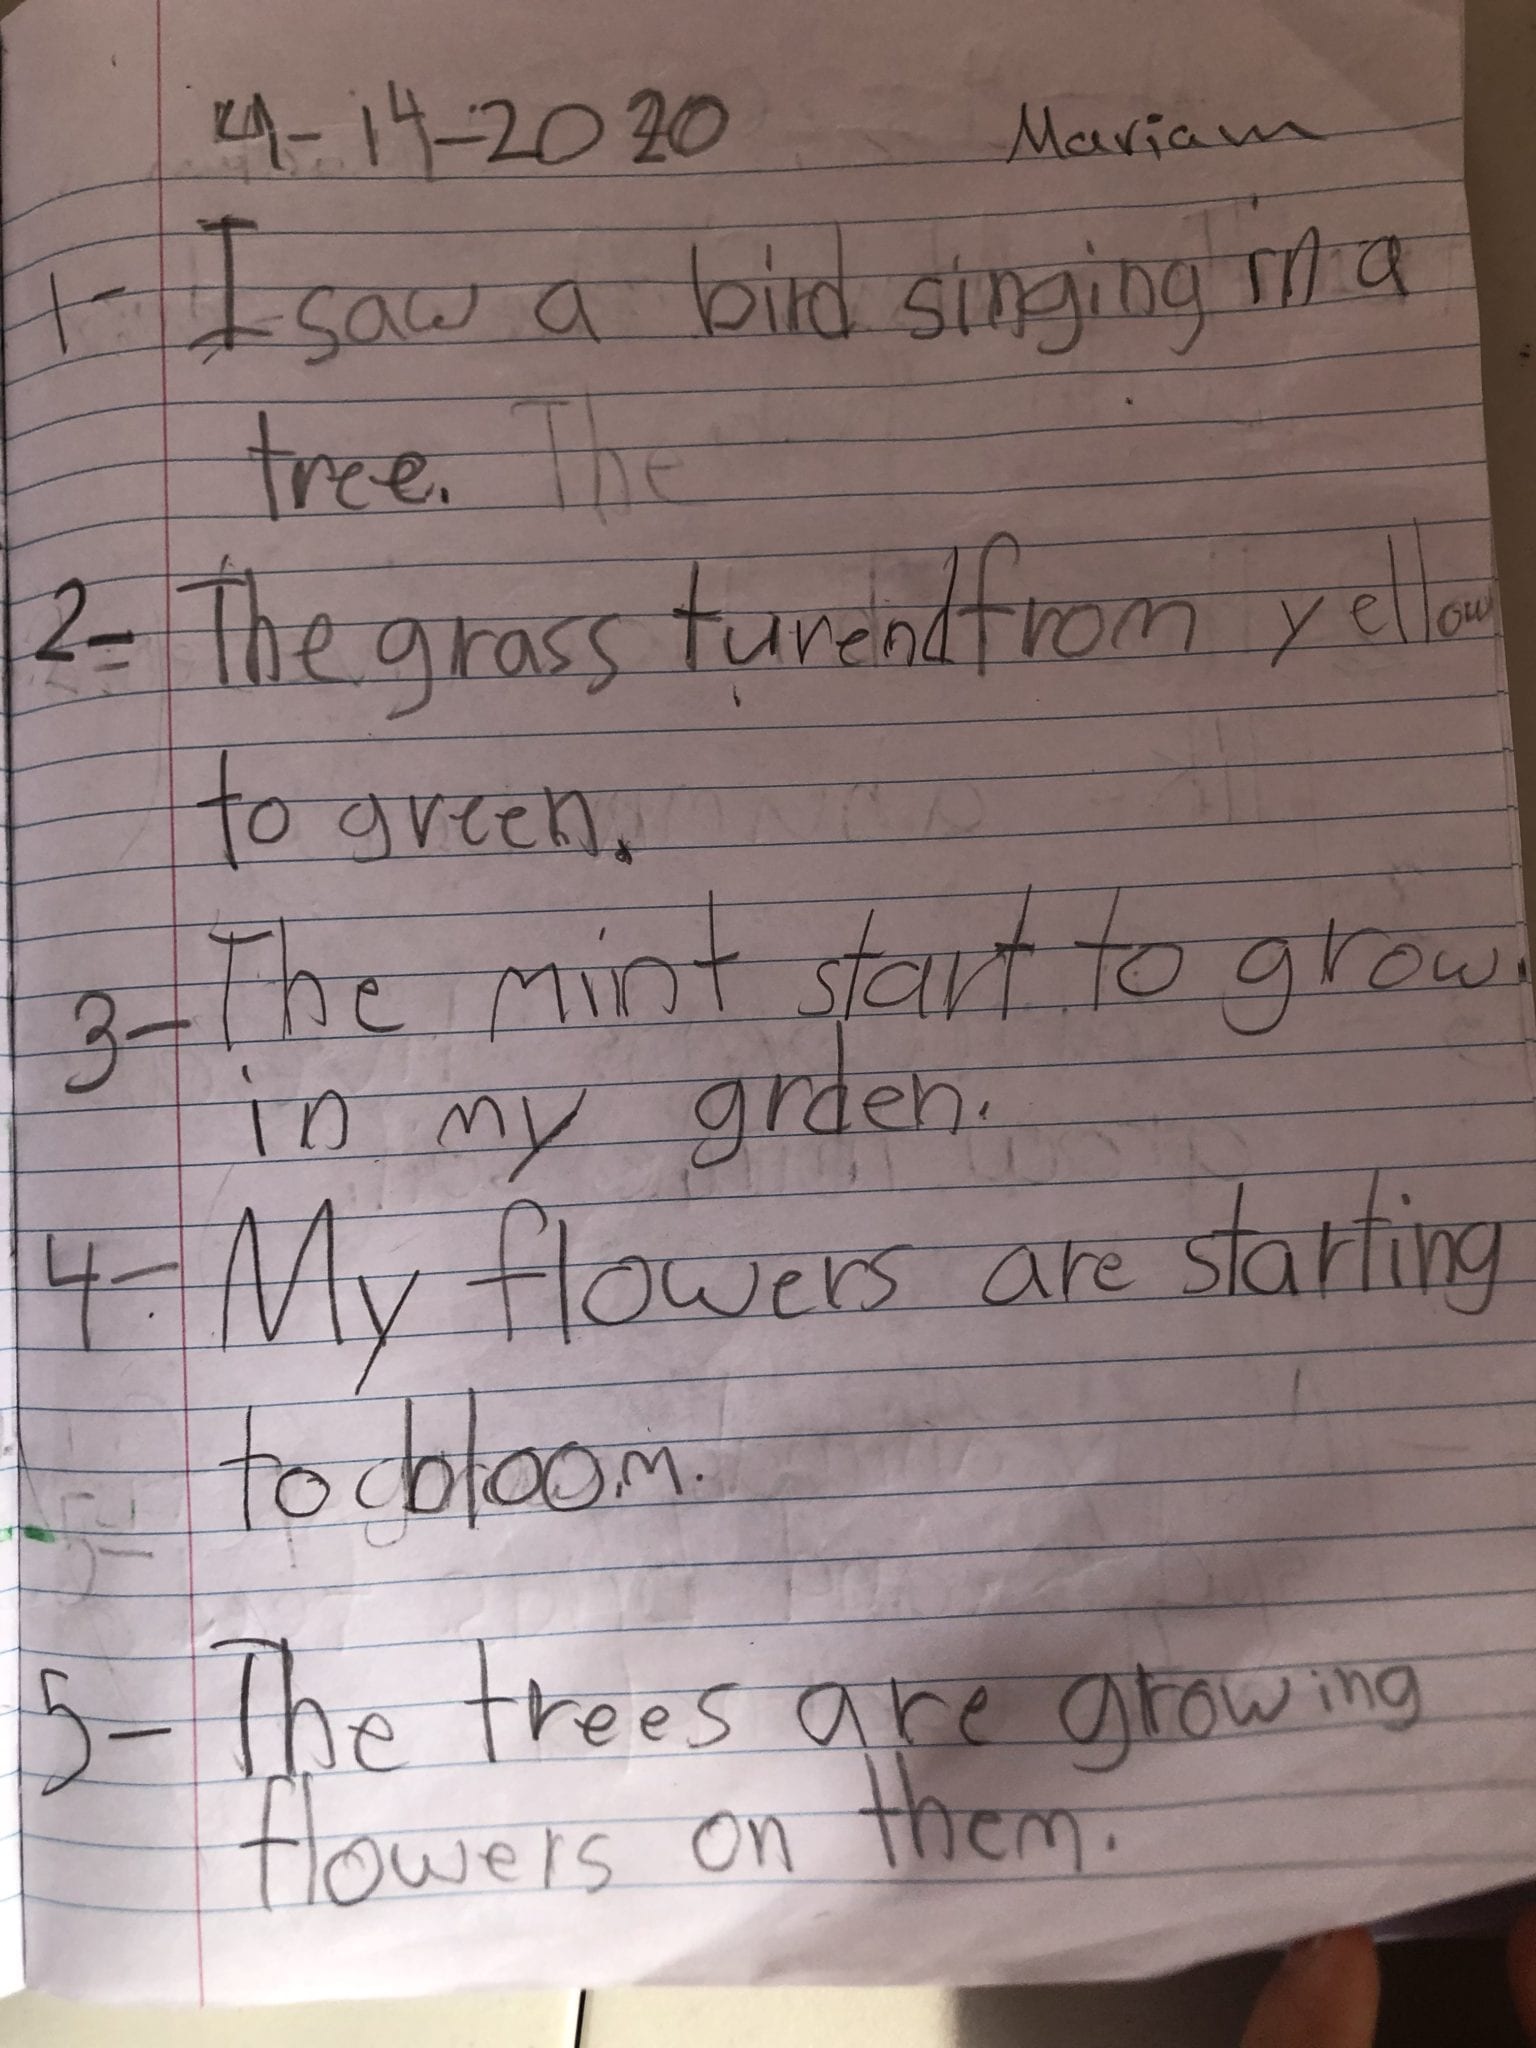 4-14-2020 Mariam
1- I saw a bird singing in a
tree. The
2- The grass turend from yellow
to green.
3- The mint start to grow
in my grden.
4- My flowers are starting
to bloom.
5- The trees are growing
flowers on them.